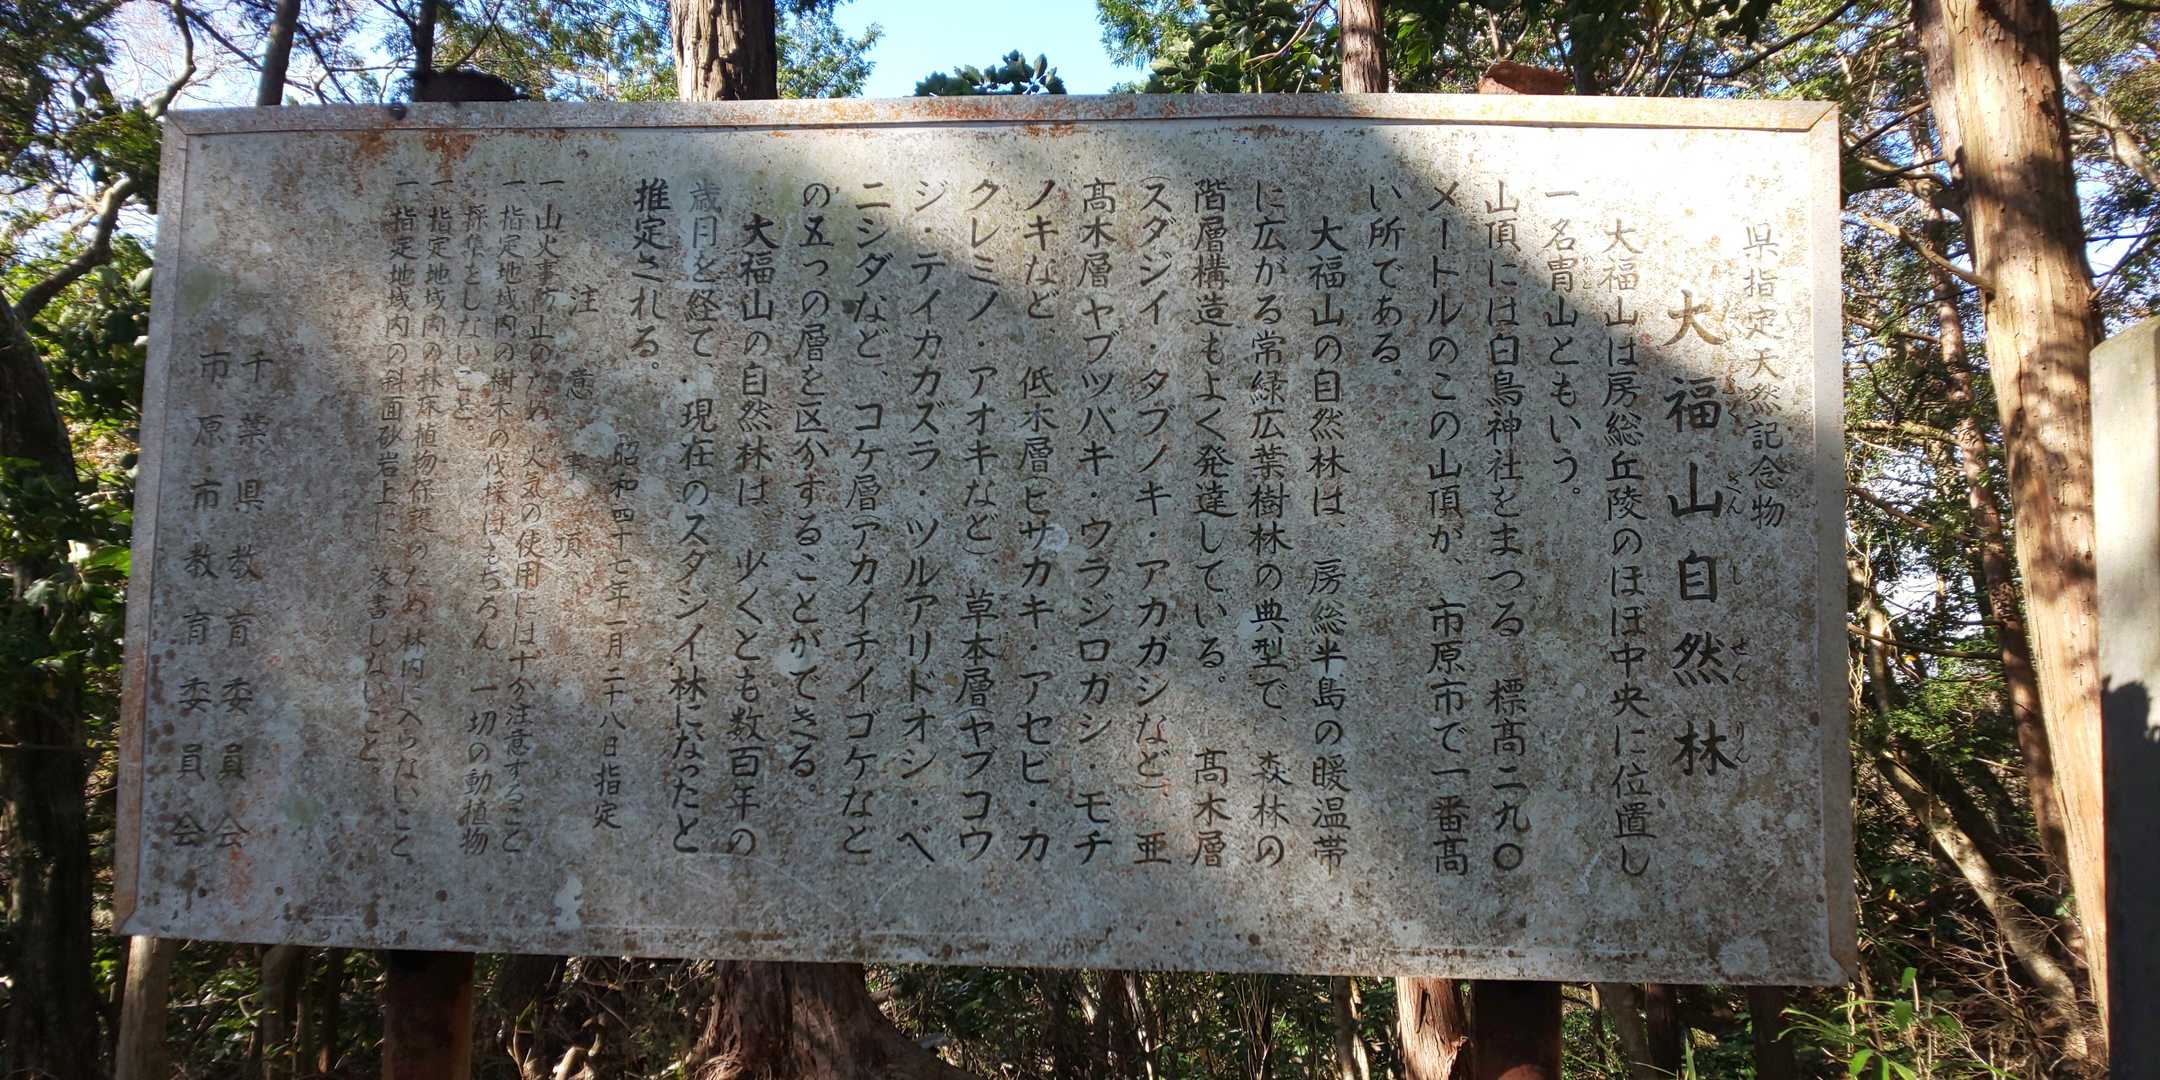 県指定天然記念物
大福山自然林
だいふくざんしぜんりん
大福山は房総丘陵のほぼ中央に位置し
一名冑山ともいう。
かぶと
山頂には白鳥神社をまつる 標高二九〇
メートルのこの山頂が、市原市で一番高
い所である。
大福山の自然林は、房総半島の暖温帯
に広がる常緑広葉樹林の典型で、森林の
階層構造もよく発達している。高木層
(スダジイ・タブノキ・アカガシなど)、亜
高木層(ヤブツバキ・ウラジロガシ・モチ
ノキなど、低木層(ヒサカキ・アセビ・カ
クレミノ・アオキなど)、草本層(ヤブコウ
ジ・テイカカズラ・ツルアリドオシ・ベ
ニシダなど、コケ層アカイチイゴケなど
の五つの層を区分することができる。
大福山の自然林は、少くとも数百年の
歳月を経て、現在のスダシイ林になったと
推定される。
昭和四十七年一月二十八日指定
注意事項
一 山火事防止のため 火気の使用には十分注意すること
一 指定地域内の樹木の伐採はもちろん 一切の動植物
採集をしないこと。
一 指定地域内の林床植物保護のため林内に入らないこと
一 指定地域内の斜面砂岩上に 落書しないこと。
千葉県教育委員会
市原市教育委員会